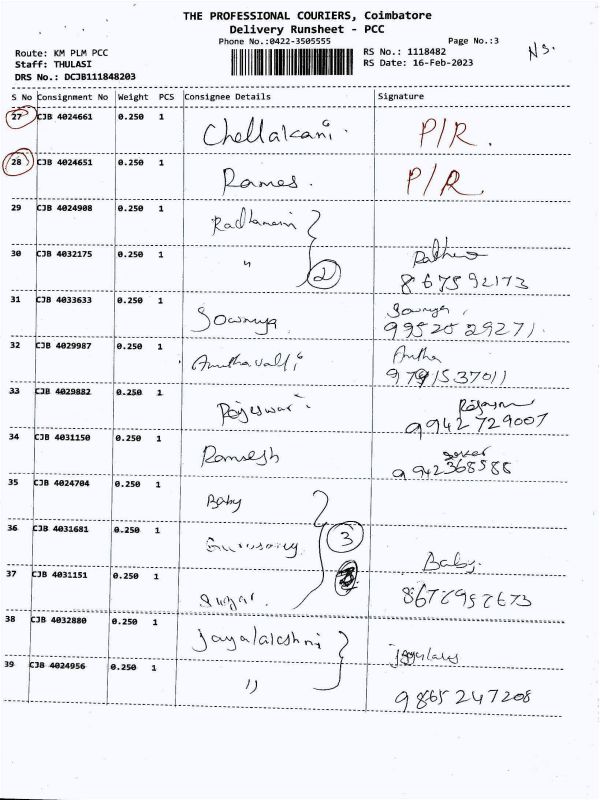 THE PROFESSIONAL COURIERS, Coimbatore
Delivery Runsheet - PCC
Phone No.:0422-3505555 Page No.:3
Route: KM PLM PCC RS No.: 1118482
Staff: THULASI RS Date: 16-Feb-2023
DRS No.: DCJB111848203
S No Consignment No Weight PCS Consignee Details Signature
27 CJB 4024661 0.250 1 Chellakani P/R.
28 CJB 4024651 0.250 1 Rames. P/R
29 CJB 4024908 0.250 1 Radhamani
30 CJB 4032175 0.250 1 " 2
867592173
31 CJB 4033633 0.250 1 Sowmya Sowmya
9952529271
32 CJB 4029987 0.250 1 Amuthavalli Amutha
9791537011
33 CJB 4029882 0.250 1 Rajeswari
9942729007
34 CJB 4031150 0.250 1 Ramesh
9942368588
35 CJB 4024704 0.250 1 Baby
36 CJB 4031681 0.250 1 3
Baby
37 CJB 4031151 0.250 1 8672952673
38 CJB 4032880 0.250 1 Jayalakshmi
39 CJB 4024956 0.250 1 "
9865247208